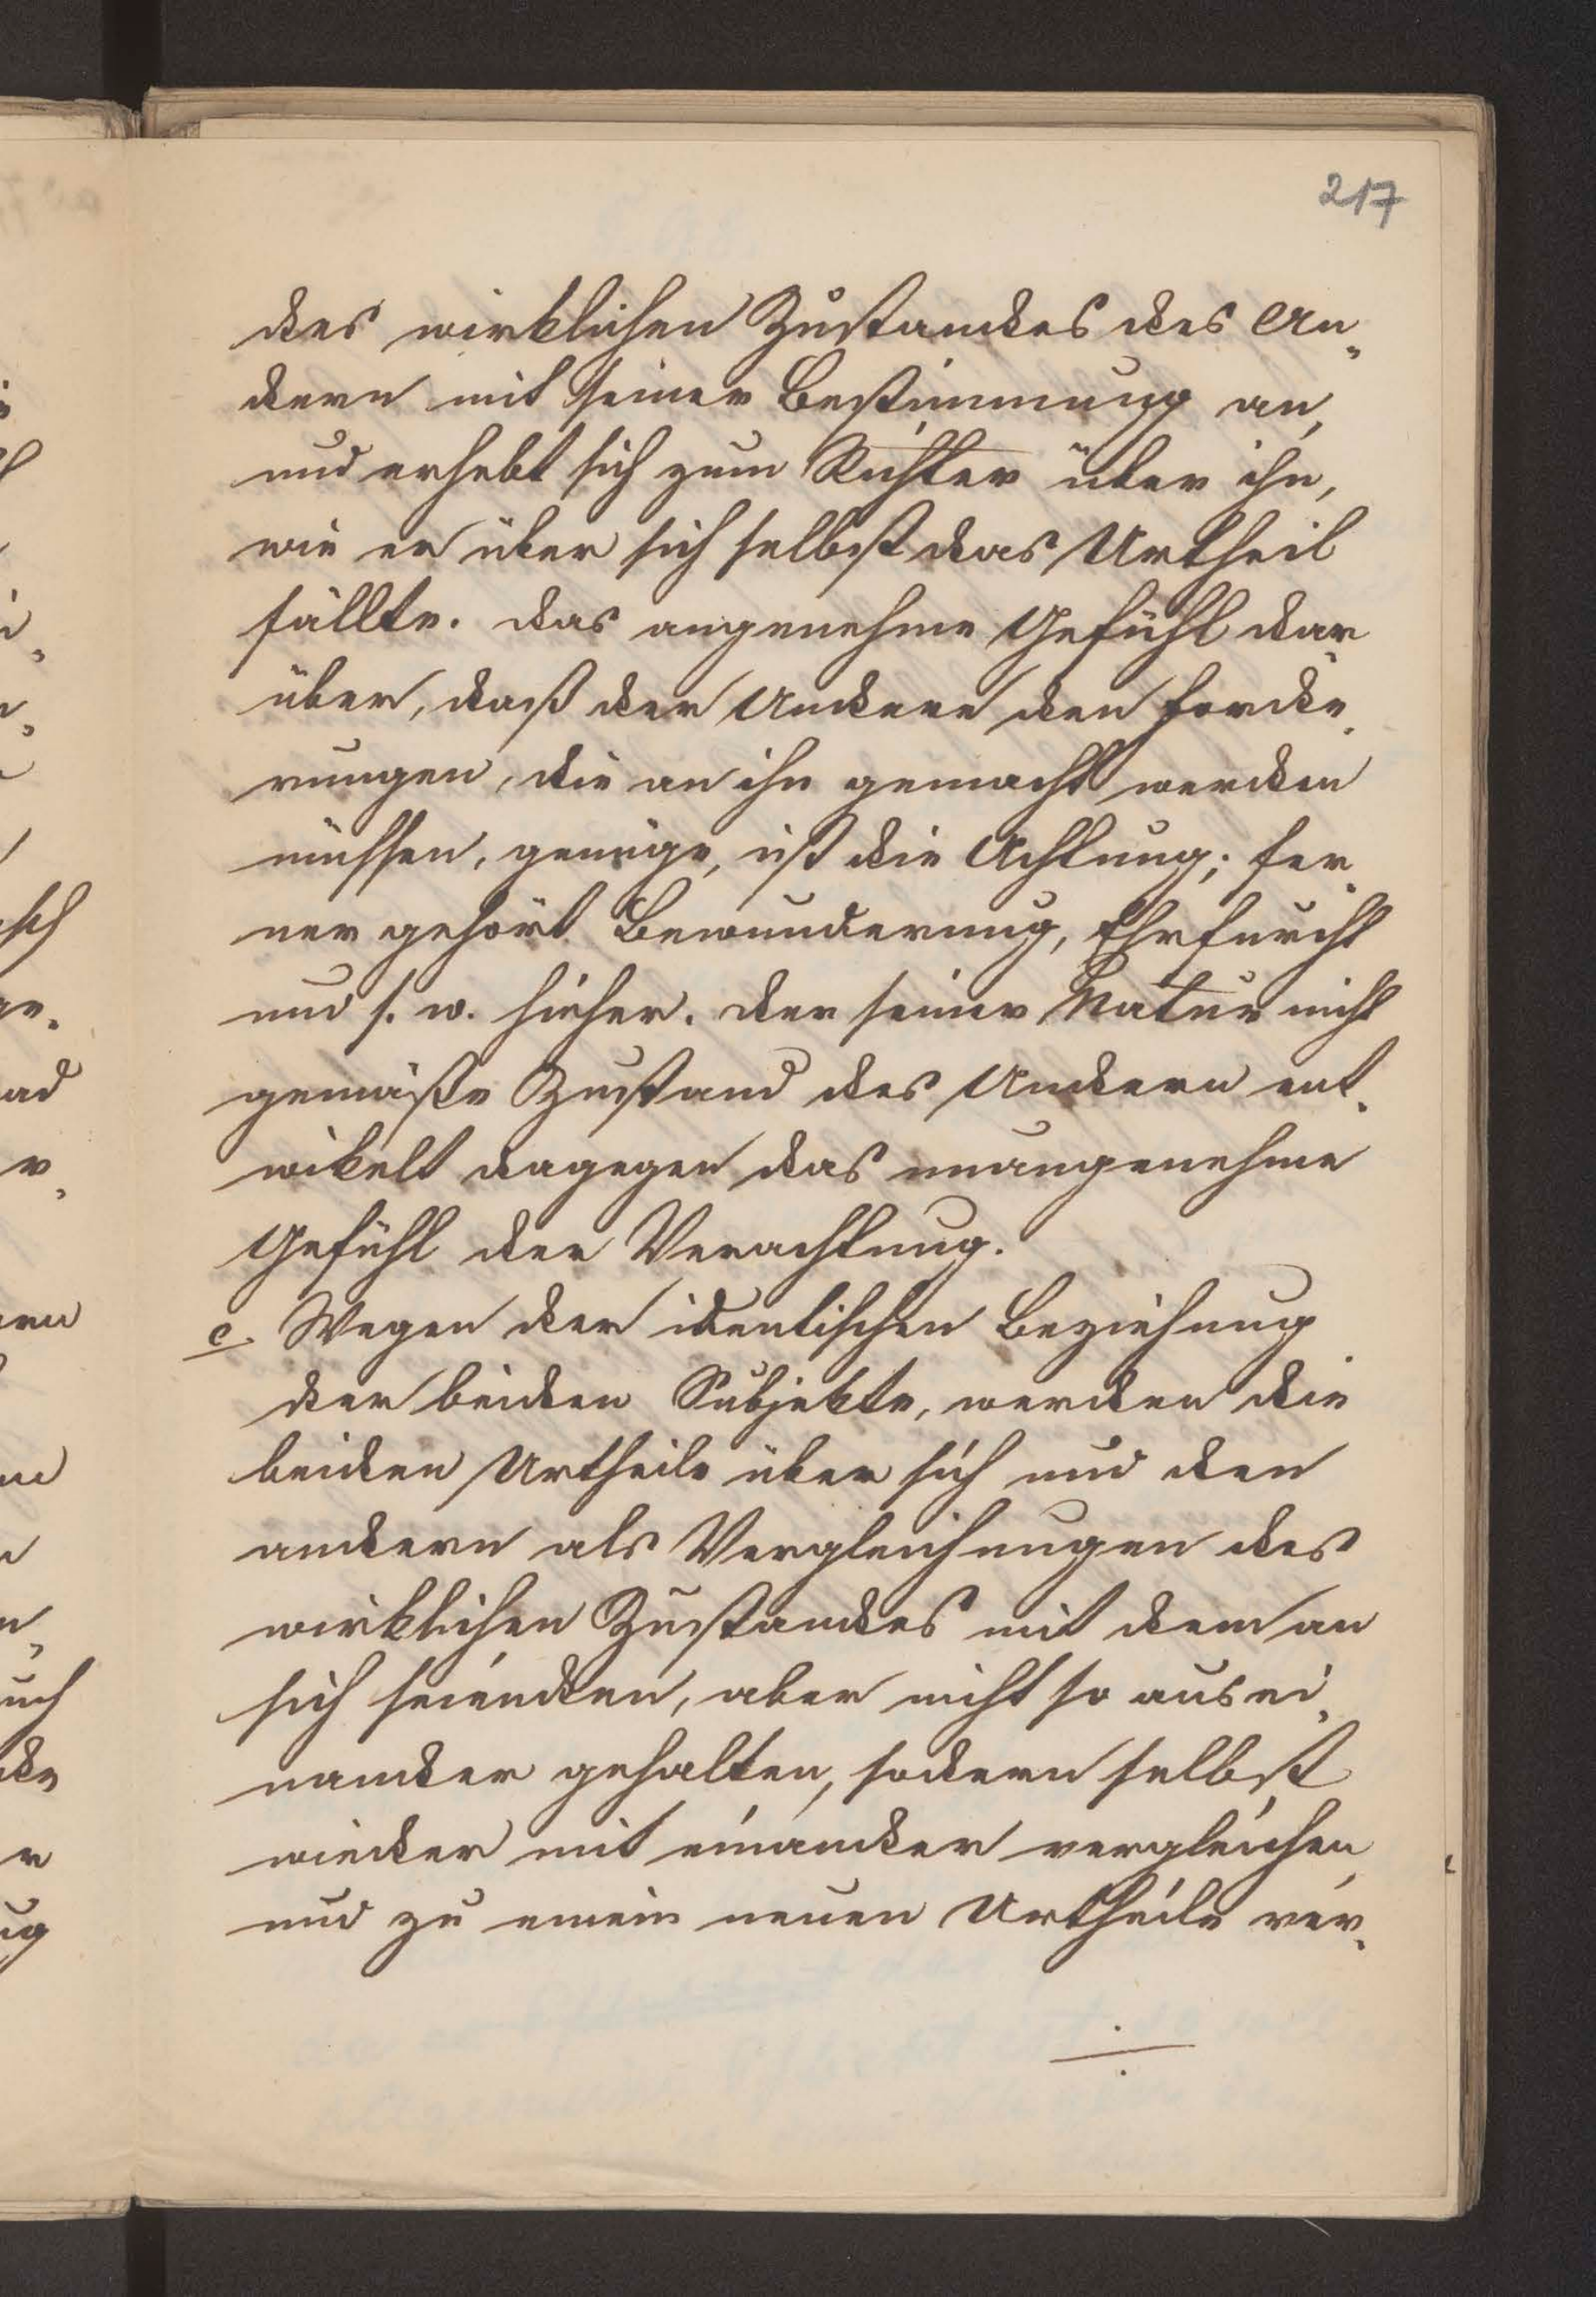 217
des wirklichen Zustandes des An„
dern mit seiner Bestimmung an,
und erhebt sich zum Richter über ihn,
wie er über sich selbst das Urtheil
fällte. Das angenehme Gefühl dar„
über, daß der Andere den Forde„
rungen, die an ihn gemacht werden
müssen, genüge, ist die Achtung; fer„
ner gehört Bewunderung, Ehrfurcht
und s. w. hieher. Der seiner Natur nicht
gemäße Zustand des Andern ent„
wikelt dagegen das unangenehme
Gefühl der Verachtung.
c. Wegen der identischen Beziehung
der beiden Subjekte, werden die
beiden Urtheile über sich und den
andern als Vergleichungen des
wirklichen Zustandes mit dem an
sich seienden, aber nicht so ausei„
nander gehalten, sodern selbst
wieder mit einander verglichen
und zu einem neuen Urtheile ver„